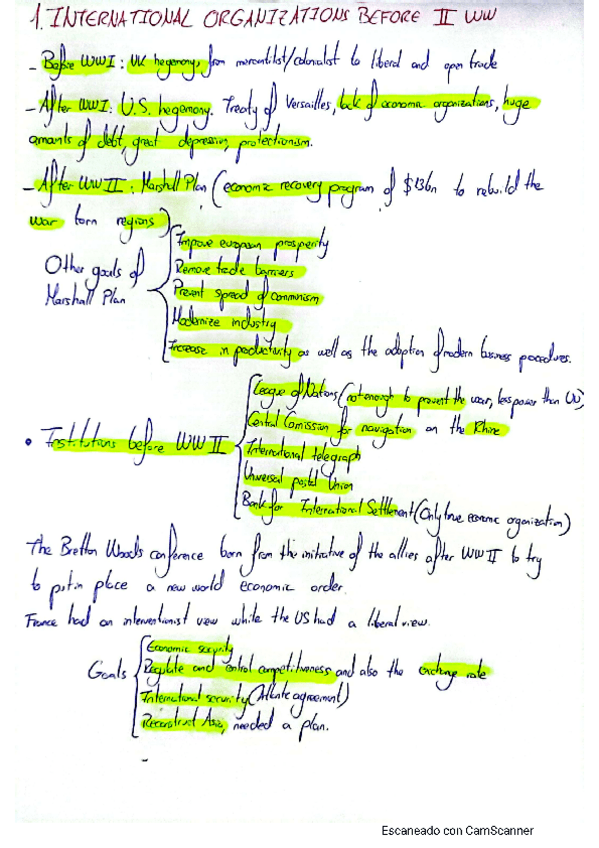 1. INTERNATIONAL ORGANIZATIONS BEFORE II WW
- Before WWI: UK hegemony, from mercantilist/colonialist to liberal and open trade
- After WWI: U.S. hegemony. Treaty of Versailles, lack of economic organizations, huge
amounts of debt, great depression, protectionism.
- After WWII: Marshall Plan (economic recovery program of $13bn to rebuild the
war torn regions)
Other goals of
Marshall Plan
Improve european prosperity
Remove trade barriers
Prevent spread of communism
Modernize industry
Increase in productivity as well as the adoption of modern business procedures.
• Institutions before WWII
League of Nations (not enough to prevent the war, less power than UN)
Central Comission for navigation on the Rhine
International telegraph
Universal postal Union
Bank for International Settlement (Only true economic organization)
The Bretton Woods conference born from the initiative of the allies after WWII to try
to put in place a new world economic order.
France had an interventionist view while the US had a liberal view.
Goals
Economic security
Regulate and control competitiveness and also the exchange rate
International security (Atlante agreement)
Reconstruct Asia, needed a plan.
-
Escaneado con CamScanner